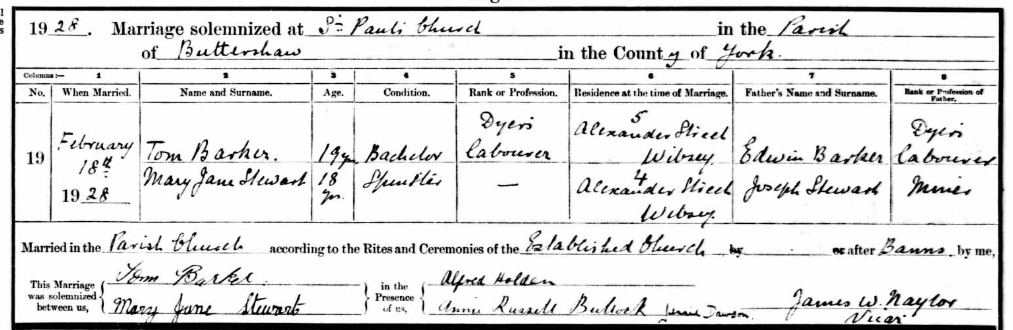 1928. Marriage solemnized at St Paul's Church in the Parish
of Buttershaw in the County of York.
Columns:— 1 2 3 4 5 6 7 8
No. When Married. Name and Surname. Age. Condition. Rank or Profession. Residence at the time of Marriage. Father's Name and Surname. Rank or Profession of Father.
19 February 18th 1928 Tom Barker. 19 yrs Bachelor Dyer's labourer 5 Alexander Street Wibsey. Edwin Barker Dyer's labourer
Mary Jane Stewart 18 yrs. Spinster — 4 Alexander Street Wibsey. Joseph Stewart Miner
Married in the Parish Church according to the Rites and Ceremonies of the Established Church by or after Banns by me,
This Marriage was solemnized between us, Tom Barker Mary Jane Stewart in the Presence of us, Alfred Holden Annie Russell Bullock Dawson. James W. Naylor Vicar